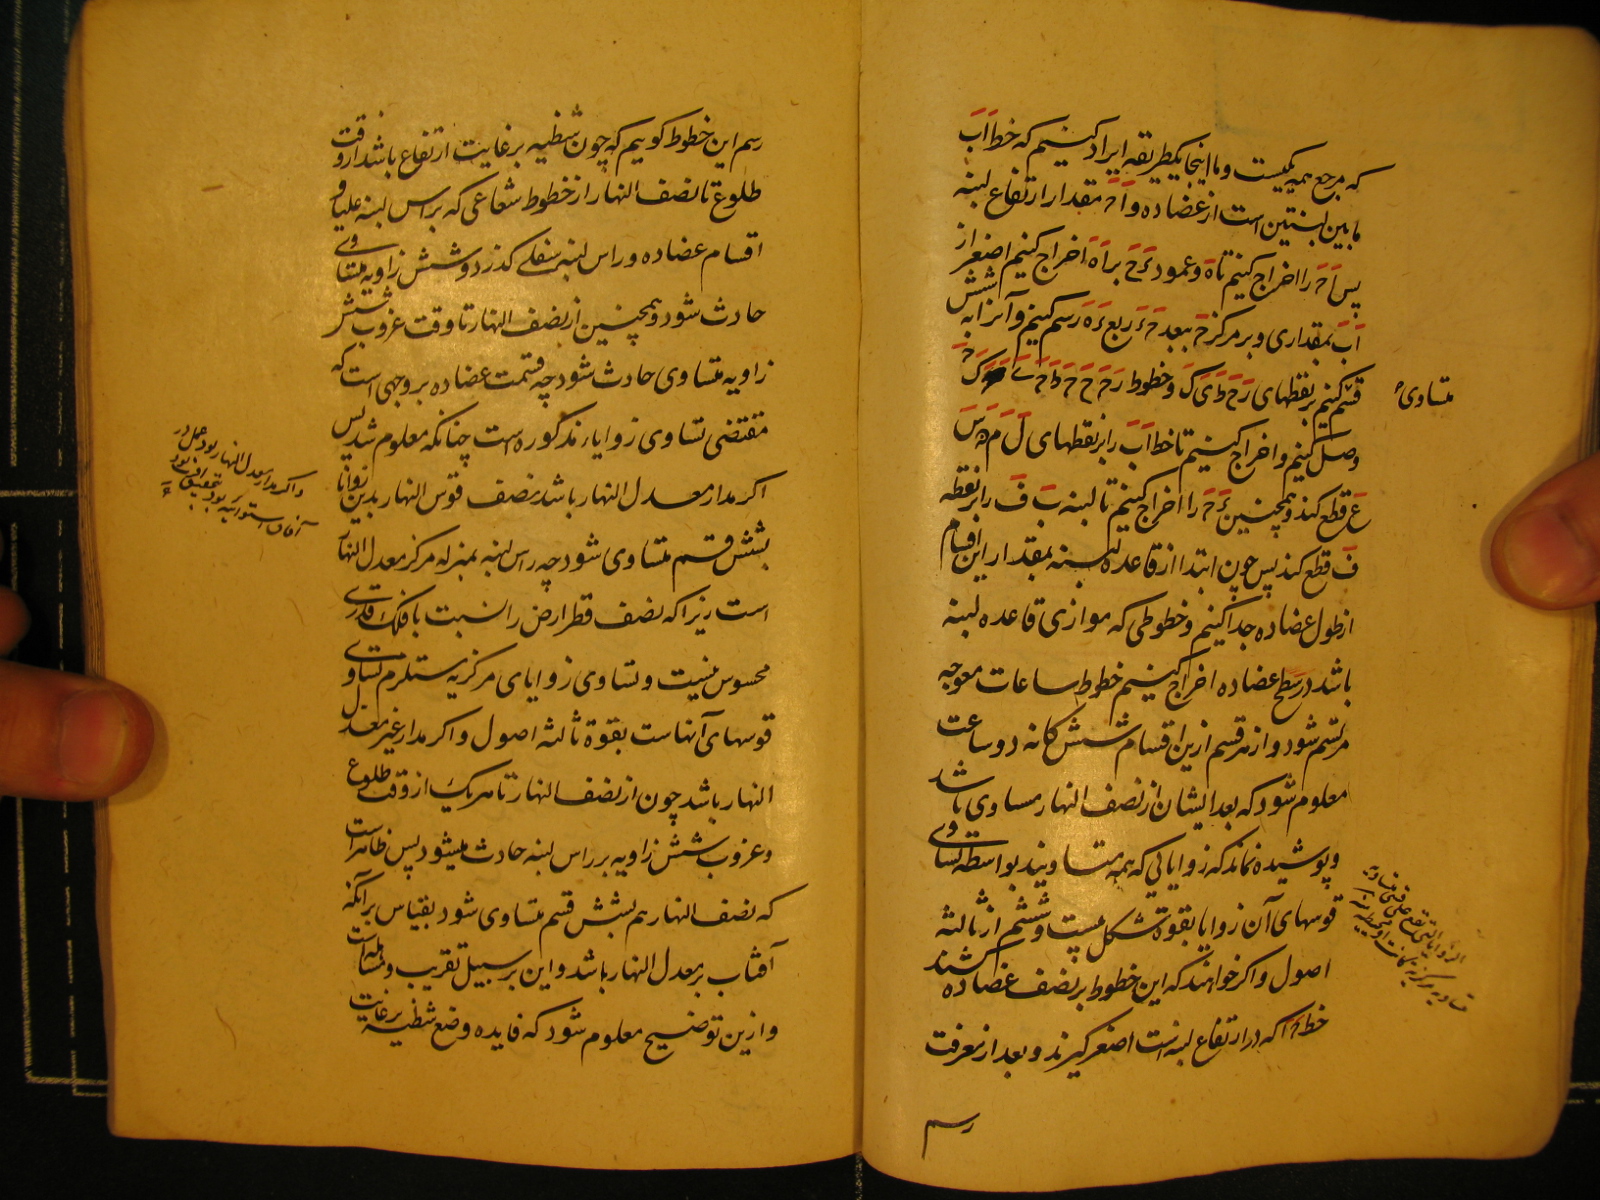 که مرجع همه یکیست و ما اینجا یکطریقه ایراد کنیم که خط اَبَ
ما بین لبنتین است از عضاده و اَحَ مقدار ارتفاع لبنه
پس اَحَ را اخراج کنیم تا هَ و عمود ءَحَ بر اَهَ اخراج کنیم اصغر از
اَبَ بمقداری و بر مرکز حَ ببعد حَءَ ربع ءَهَ رسم کنیم و آنرا به شش
متساوی
قسم کنیم بر نقطهای رَحَطَیَکَ و خطوط رَحَ حَحَ طَحَ یَحَ کَحَ
وصل کنیم و اخراج کنیم تا خط اَبَ را بر نقطهای لَ مَ نَ سَ
عَ قطع کند و همچنین ءَحَ را اخراج کنیم تا لبنه بَ فَ را بر نقطه
فَ قطع کند پس چون ابتدا از قاعده لبنه بمقدار این اقسام
از طول عضاده جدا کنیم و خطوطی که موازی قاعده لبنه
باشد در سطح عضاده اخراج کنیم خطوط ساعات معوجه
مرتسم شود و از هر قسم ازین اقسام ششکانه دو ساعت
معلوم شود که بعد ایشان از نصف النهار مساوی باشد
و پوشیده نماند که زوایائی که همه متساویند بواسطه تساوی
قوسهای آن زوایا بقوة شکل بیست و ششم از ثالثه
اصول و اکر خواهند که این خطوط بر نصف عضاده کشند
خط اَحَ که در ارتفاع لبنه است اصغر کیرند و بعد از معرفت
رسم
رسم این خطوط کوییم که چون شظیه بر غایت ارتفاع باشد از وقت
طلوع تا نصف النهار از خطوط شعاعی که بر راس لبنه علیا و
اقسام عضاده و راس لبنه سفلی کذرد و شش زاویه متساوی
حادث شود و همچنین از نصف النهار تا وقت غروب شش
زاویه متساوی حادث شود چه قسمت عضاده بر وجهی است که
مقتضی تساوی زوایاء مذکوره است چنانکه معلوم شد پس
اکر مدار معدل النهار باشد نصف قوس النهار بدین زوایا
بشش قسم متساوی شود چه راس لبنه بمنزله مرکز معدل النهار
است زیرا که نصف قطر ارض را نسبت با فلک قدری
محسوس نیست و تساوی زوایای مرکزیه مستلزم تساوی
قوسهای آنهاست بقوة ثالثه اصول و اکر مدار غیر معدل
النهار باشد چون از نصف النهار تا هر یک از وقت طلوع
و غروب شش زاویه بر راس لبنه حادث میشود پس ظاهر است
که نصف النهار هم بشش قسم متساوی شود بقیاس بر آنکه
آفتاب بر معدل النهار باشد و این بر سبیل تقریب و مساهله است
و ازین توضیح معلوم شود که فایده وضع شظیه بر غایت
و اکر مدار معدل النهار بود عمل در
آفاق استوائیه بود